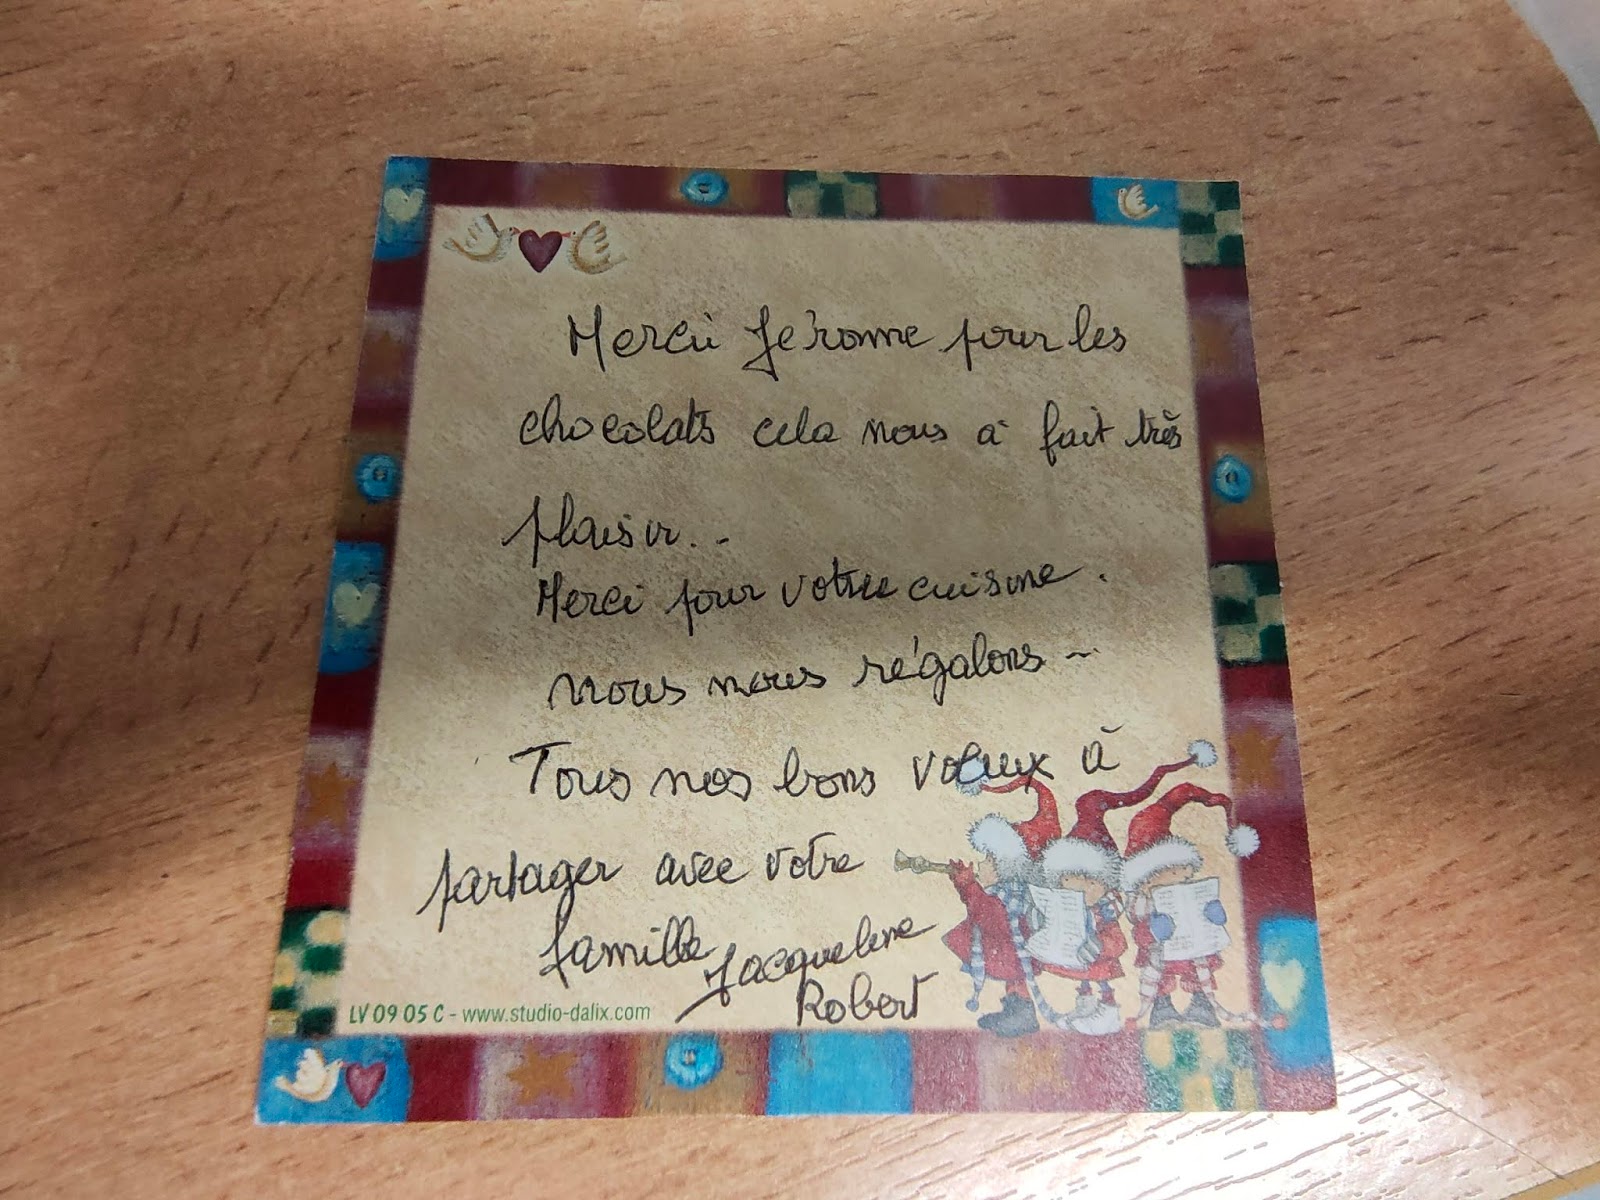 Merci Jérome pour les
chocolats cela nous à fait très
plaisir...
Merci pour votre cuisine.
nous nous régalons ...
Tous nos bons voeux à
partager avec votre
famille Jacqueline
Robert
LV 09 05 C - www.studio-dalix.com